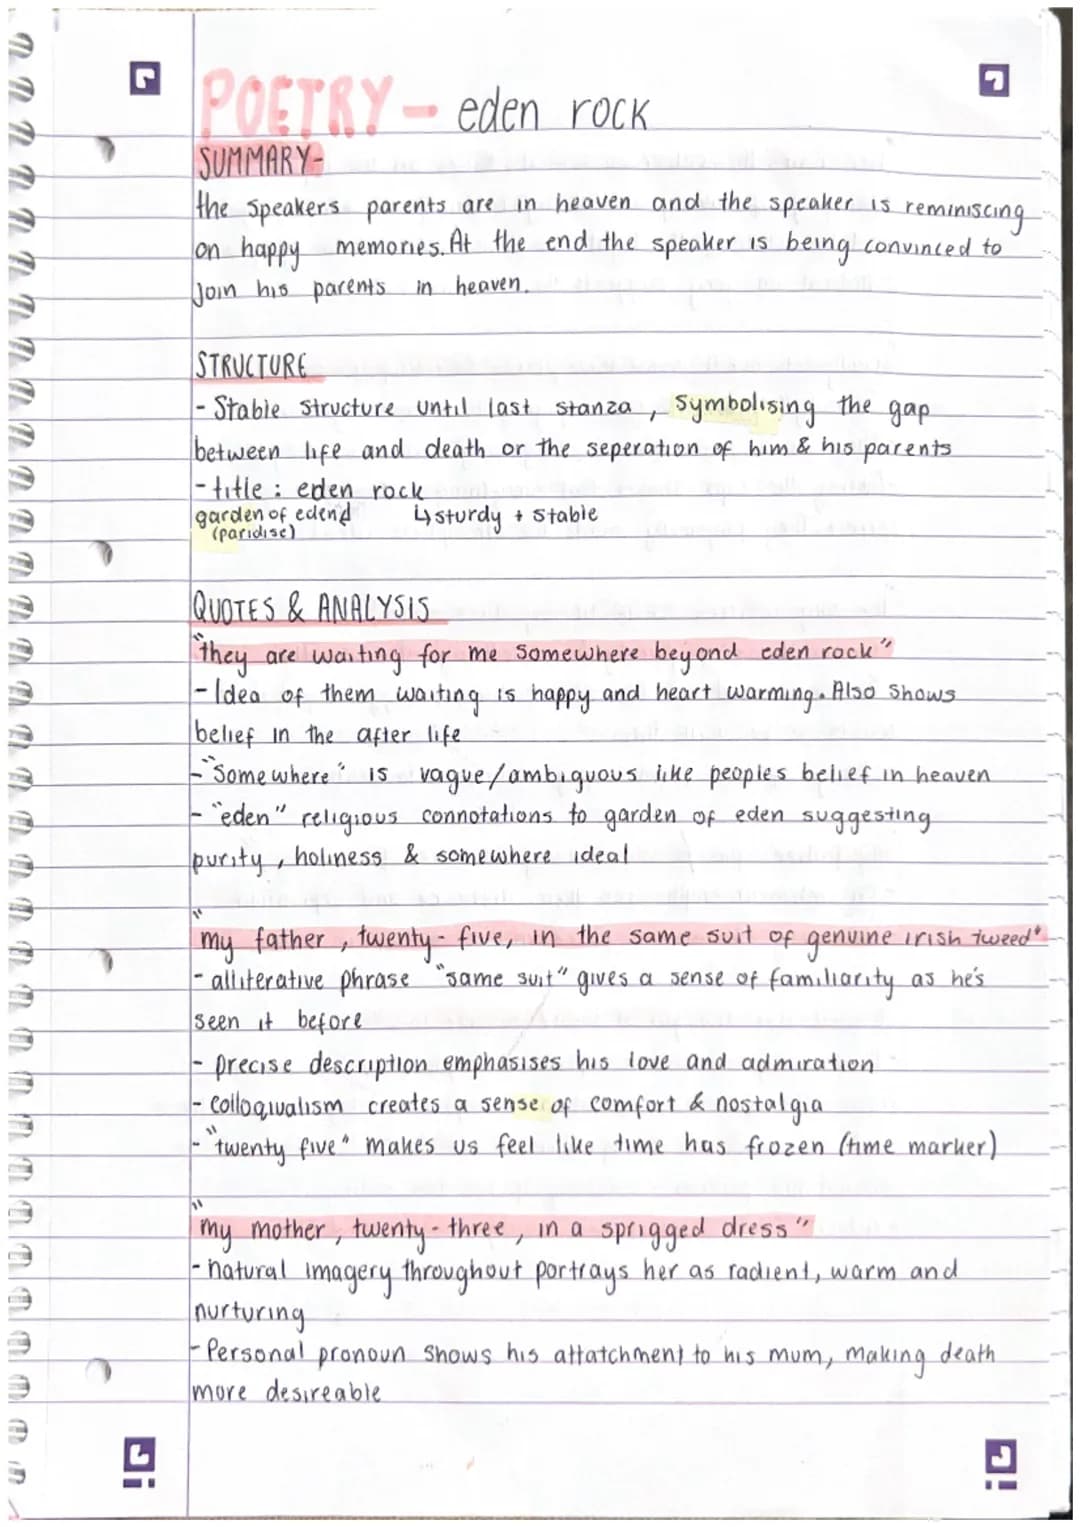 POETRY - eden rock
SUMMARY-
the speakers parents are in heaven and the speaker is reminiscing
on happy memories. At the end the speaker is being convinced to
join his parents in heaven.
STRUCTURE
- Stable structure until last stanza, symbolising the gap
between life and death or the seperation of him & his parents
- title : eden rock
garden of eden↲ ↳ sturdy + stable
(paridise)
QUOTES & ANALYSIS
"they are waiting for me somewhere beyond eden rock"
- Idea of them waiting is happy and heart warming. Also shows
belief in the after life
- "Somewhere" is vague/ambiguous like peoples belief in heaven
- "eden" religious connotations to garden of eden suggesting
purity, holiness & somewhere ideal
"my father, twenty-five, in the same suit of genuine irish tweed"
- alliterative phrase "same suit" gives a sense of familiarity as he's
seen it before
- precise description emphasises his love and admiration
- colloquialism creates a sense of comfort & nostalgia
- "twenty five" makes us feel like time has frozen (time marker)
"my mother, twenty-three, in a sprigged dress"
- natural imagery throughout portrays her as radient, warm and
nurturing
- Personal pronoun shows his attatchment to his mum, making death
more desireable